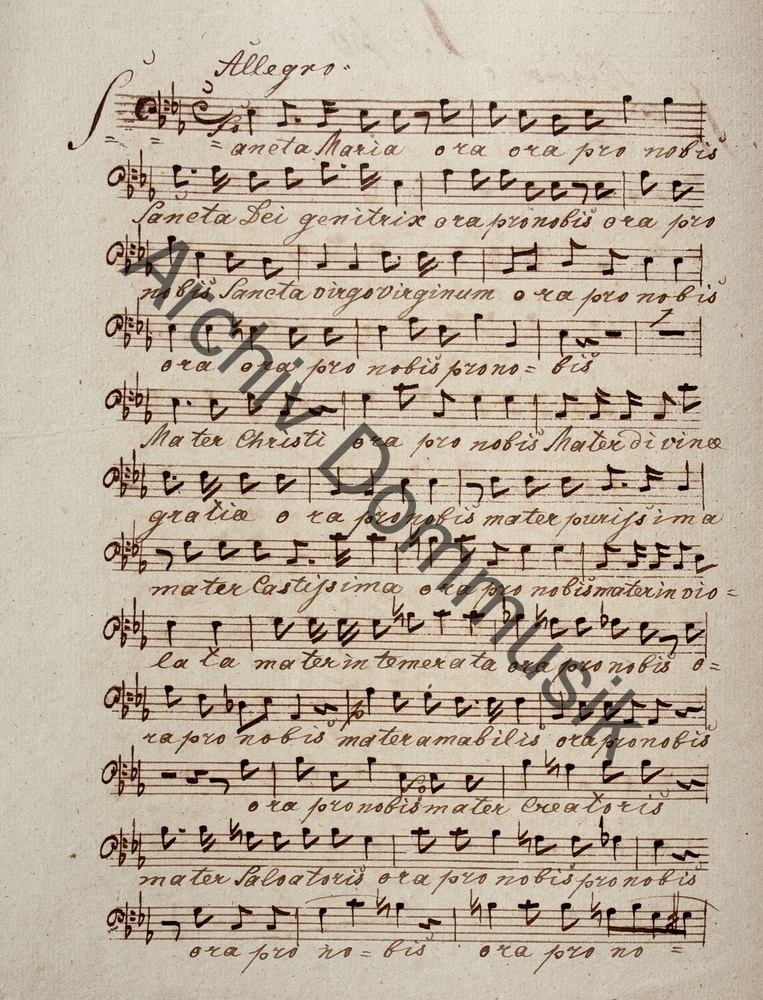 Allegro.
So
Sancta Maria ora ora pro nobis
Sancta Dei genitrix ora pro nobis ora pro
nobis Sancta virgo virginum ora pro nobis
1
ora ora pro nobis pro no= bis
Mater Christi ora pro nobis Mater divinæ
gratiæ ora pro nobis mater purissima
mater Castissima ora pro nobis mater invio=
lata mater intemerata ora pro nobis o=
p
ra pro nobis mater amabilis ora pro nobis
So
ora pro nobis mater Creatoris
mater Salvatoris ora pro nobis pro nobis
ora pro no= bis ora pro no =
Archiv Dommusik